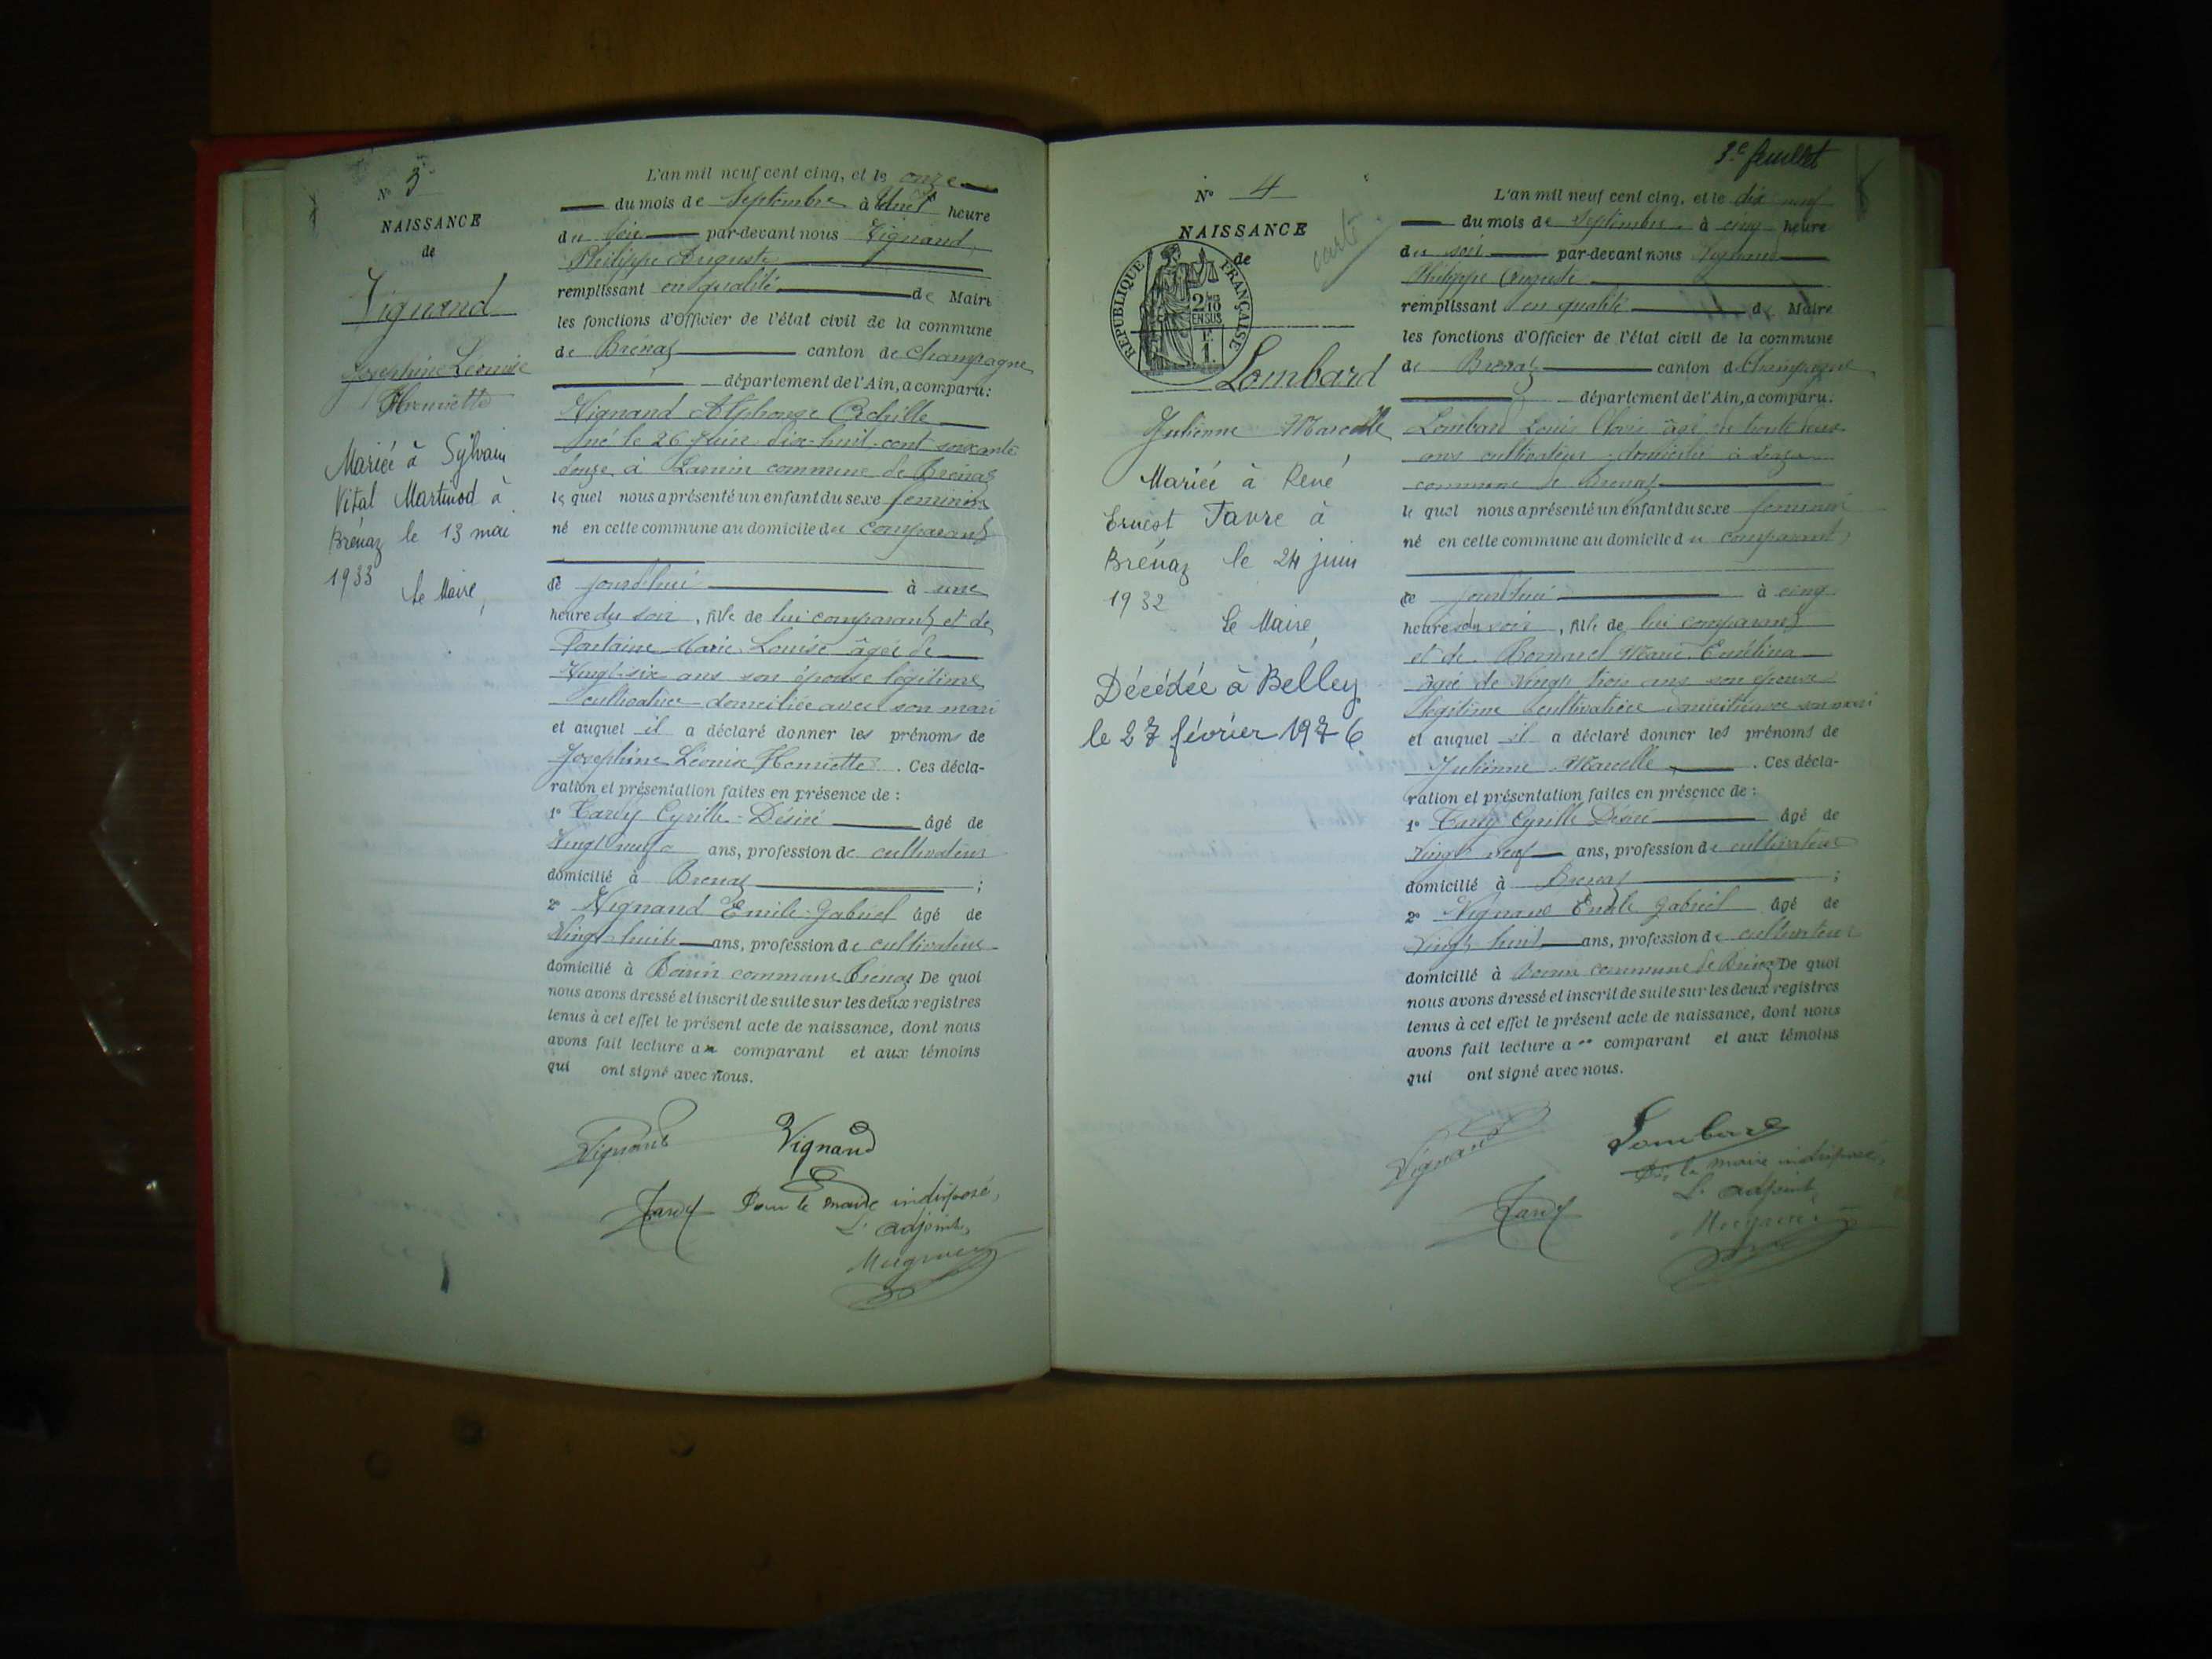 N° 3
NAISSANCE
de
Vignand
Joséphine Léonise
Henriette
Mariée à Sylvain
Vital Martinod à
Brénaz le 13 mai
1933
Le Maire,
L'an mil neuf cent cinq, et le onze
du mois de Septembre à heure
du soir par-devant nous Vignand
Philippe Auguste
remplissant en qualité de Maire
les fonctions d'Officier de l'état civil de la commune
de Brénaz canton de Champagne
département de l'Ain, a comparu:
Vignand Alphonse Achille
né le 26 Juin dix-huit-cent soixante
douze à commune de Brénaz
le quel nous a présenté un enfant du sexe féminin
né en cette commune au domicile du comparant
ce jourd'hui à une
heure du soir, fille de lui comparant et de
Fontaine Marie Louise âgée de
Vingt-six ans son épouse légitime
cultivatrice domiciliée avec son mari
et auquel il a déclaré donner les prénoms de
Joséphine Léonise Henriette. Ces décla-
ration et présentation faites en présence de :
1° Tardy Cyrille-Désiré âgé de
Vingt neuf ans, profession de cultivateur
domicilié à Brenaz ;
2° Vignand Emile-Gabriel âgé de
Vingt-huit ans, profession de cultivateur
domicilié à commune Brenaz De quoi
nous avons dressé et inscrit de suite sur les deux registres
tenus à cet effet le présent acte de naissance, dont nous
avons fait lecture au comparant et aux témoins
qui ont signé avec nous.
Vignand Vignand
Tardy Pour le maire indisposé,
L'adjoint,
3e feuillet
N° 4
NAISSANCE
de
carte
RÉPUBLIQUE FRANÇAISE
2/10
EN SUS
1 F.
Lombard
Julienne Marcelle
Mariée à René
Ernest Favre à
Brénaz le 24 juin
1932
Le Maire,
Décédée à Belley
le 27 février 1976
L'an mil neuf cent cinq, et le dix neuf
du mois de Septembre à cinq heure
du soir par-devant nous Vignand
Philippe Auguste
remplissant en qualité de Maire
les fonctions d'Officier de l'état civil de la commune
de Brenaz canton de Champagne
département de l'Ain, a comparu:
Lombard Louis Clovis âgé de trente deux
ans cultivateur domicilié à
commune de Brenaz
le quel nous a présenté un enfant du sexe féminin
né en cette commune au domicile du comparant
ce jourd'hui à cinq
heure du soir, fille de lui comparant
et de Marie Emélina
âgée de vingt trois ans son épouse
légitime cultivatrice domiciliée avec son mari
et auquel il a déclaré donner les prénoms de
Julienne Marcelle. Ces décla-
ration et présentation faites en présence de :
1° Tardy Cyrille Désiré âgé de
Vingt neuf ans, profession de cultivateur
domicilié à Brenaz ;
2° Vignand Emile Gabriel âgé de
Vingt-huit ans, profession de cultivateur
domicilié à commune de Brénaz De quoi
nous avons dressé et inscrit de suite sur les deux registres
tenus à cet effet le présent acte de naissance, dont nous
avons fait lecture au comparant et aux témoins
qui ont signé avec nous.
Vignand Lombard
Pr le maire indisposé,
L'adjoint,
Tardy